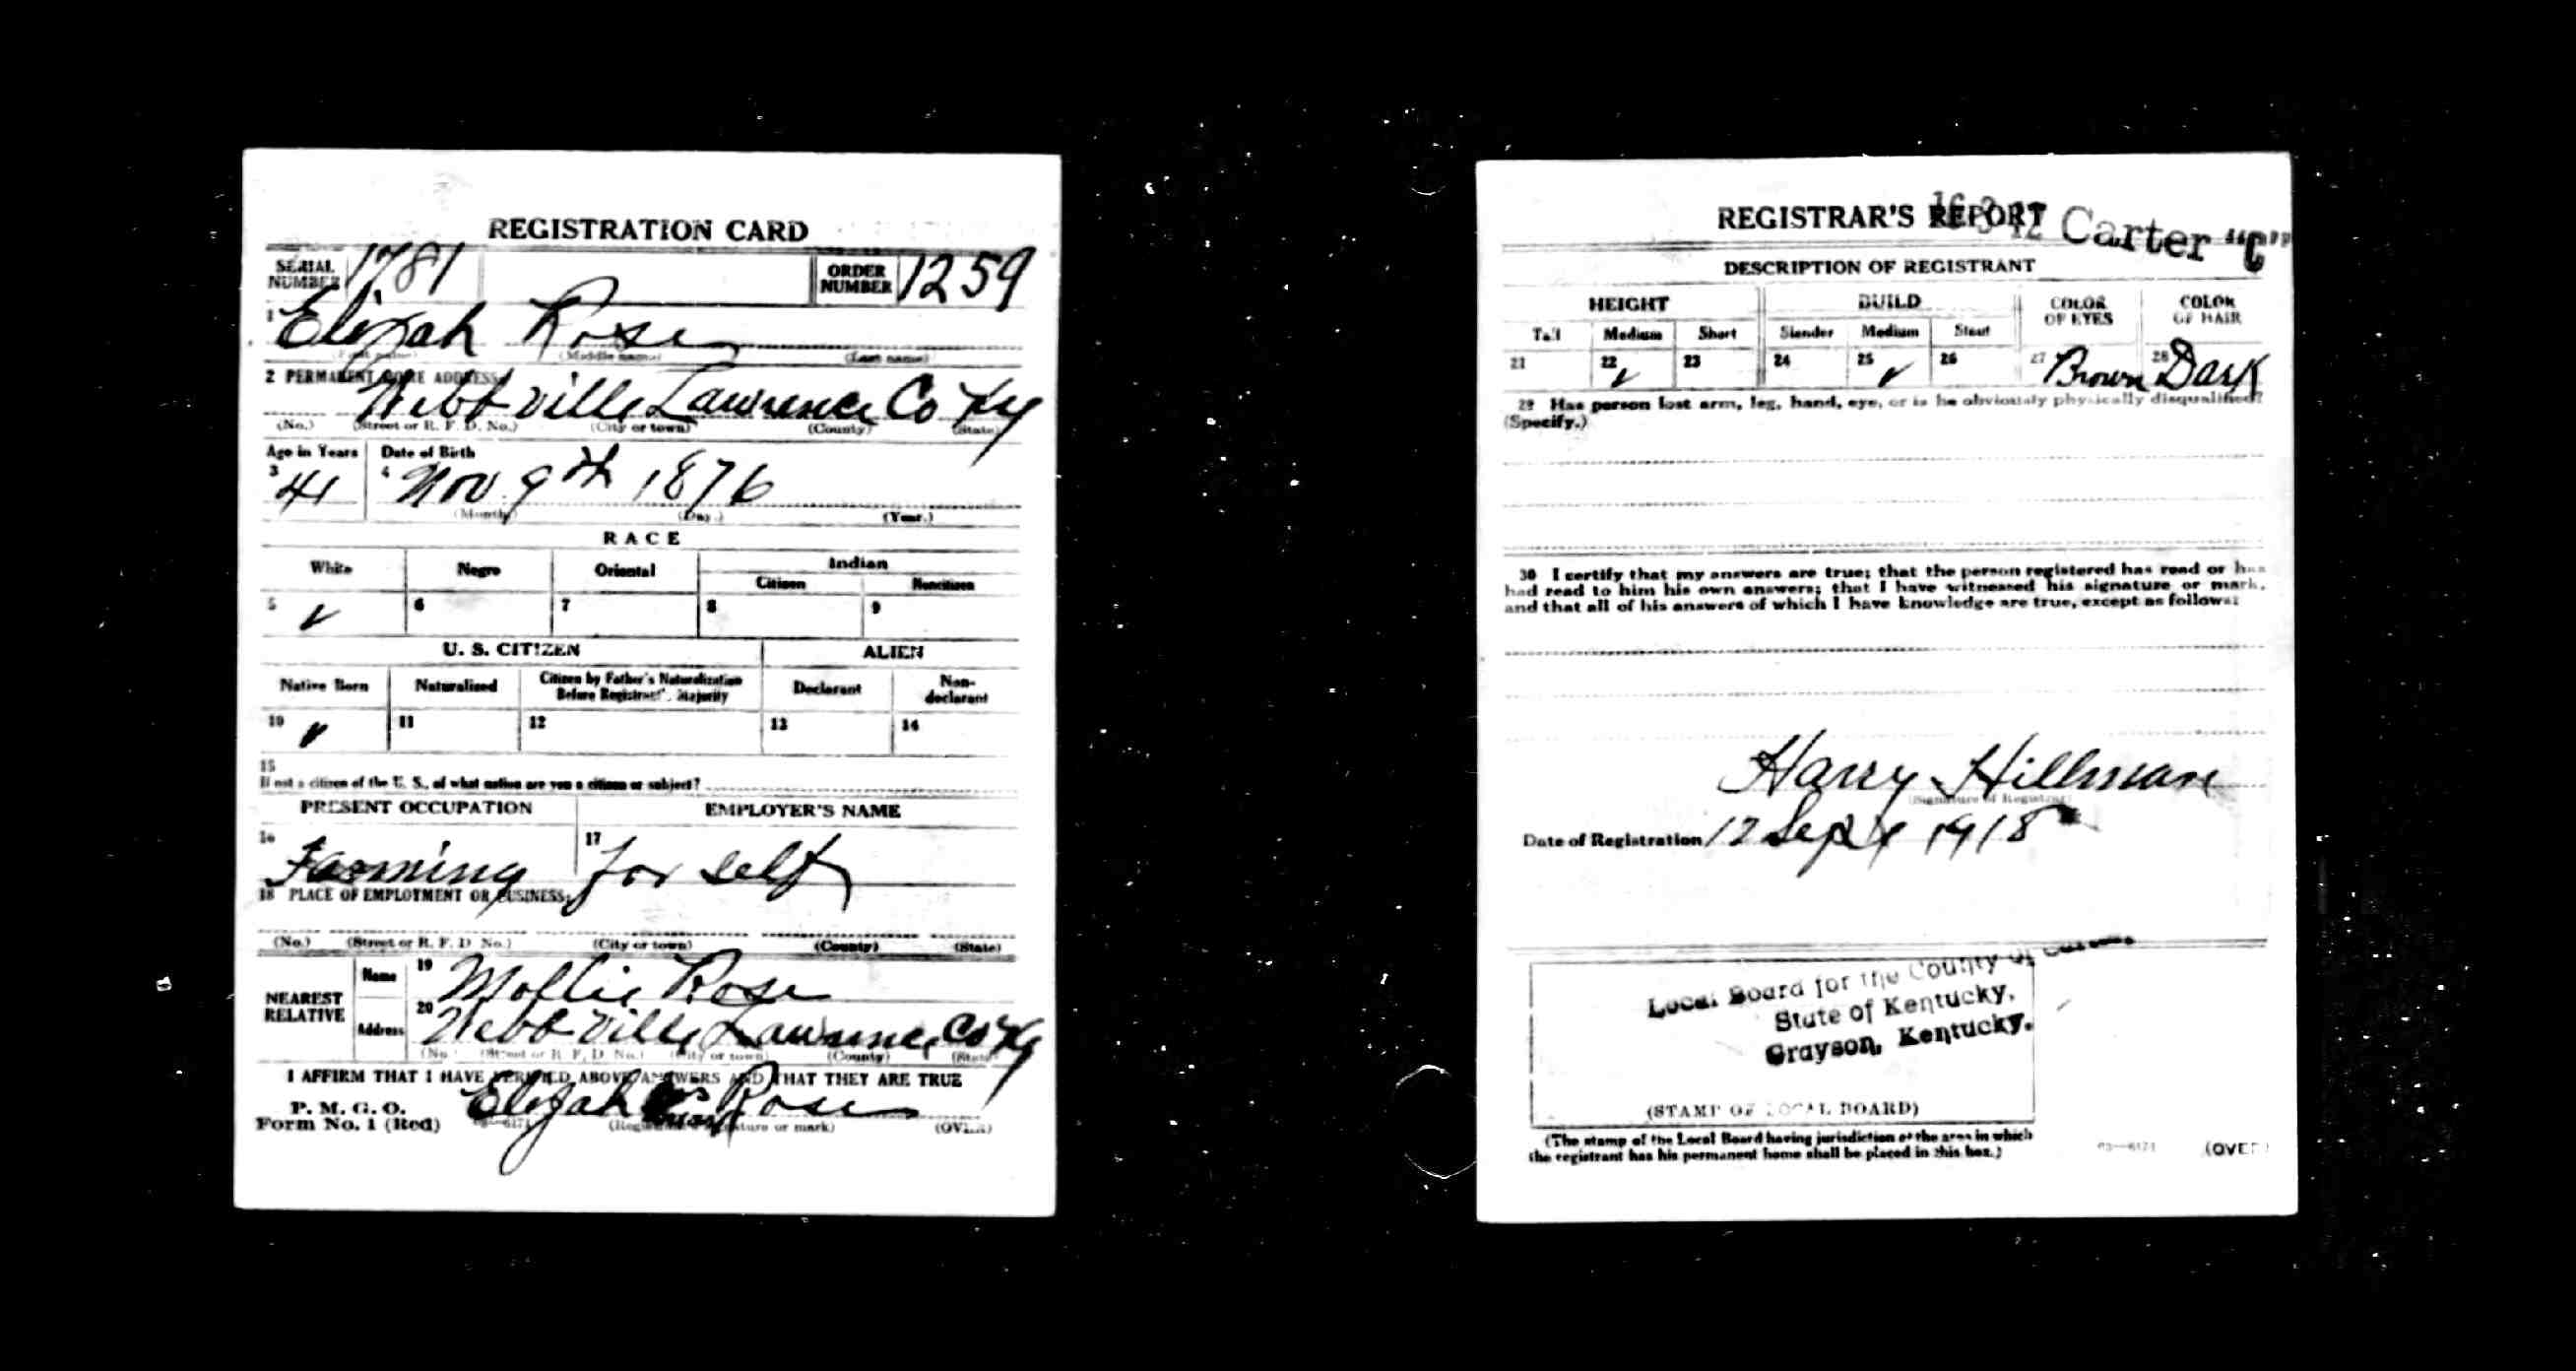 REGISTRATION CARD
SERIAL NUMBER 1781 ORDER NUMBER 1259
1 Elijah Rose
(First name) (Middle name) (Last name)
2 PERMANENT HOME ADDRESS
Webbville Lawrence Co Ky
(No.) (Street or R. F. D. No.) (City or town) (County) (State)
Age in Years Date of Birth
3 41 4 Nov. 9th 1876
(Month) (Day.) (Year.)
RACE
White Negro Oriental Indian
Citizen Noncitizen
5 ✓ 6 7 8 9
U. S. CITIZEN ALIEN
Native Born Naturalized Citizen by Father's Naturalization Before Registrant's Majority Declarant Non-declarant
10 ✓ 11 12 13 14
15
If not a citizen of the U. S., of what nation are you a citizen or subject?
PRESENT OCCUPATION EMPLOYER'S NAME
16 Farming 17 for self
18 PLACE OF EMPLOYMENT OR BUSINESS:
(No.) (Street or R. F. D. No.) (City or town) (County) (State)
NEAREST RELATIVE
Name 19 Mollie Rose
Address 20 Webbville Lawrence Co Ky
(No.) (Street or R. F. D. No.) (City or town) (County) (State)
I AFFIRM THAT I HAVE VERIFIED ABOVE ANSWERS AND THAT THEY ARE TRUE
P. M. G. O.
Form No. 1 (Red) Elijah his mark Rose
03—6171 (Registrant's signature or mark) (OVER)
REGISTRAR'S REPORT Carter "C"
DESCRIPTION OF REGISTRANT
HEIGHT BUILD COLOR OF EYES COLOR OF HAIR
Tall Medium Short Slender Medium Stout
21 22 ✓ 23 24 25 ✓ 26 27 Brown 28 Dark
29 Has person lost arm, leg, hand, eye, or is he obviously physically disqualified?
(Specify.)
30 I certify that my answers are true; that the person registered has read or has
had read to him his own answers; that I have witnessed his signature or mark,
and that all of his answers of which I have knowledge are true, except as follows:
Harry Hillman
(Signature of Registrar)
Date of Registration 12 Sept 1918
Local Board for the County of Carter,
State of Kentucky,
Grayson, Kentucky.
(STAMP OF LOCAL BOARD)
(The stamp of the Local Board having jurisdiction of the area in which
the registrant has his permanent home shall be placed in this box.)
03—6171 (OVER)